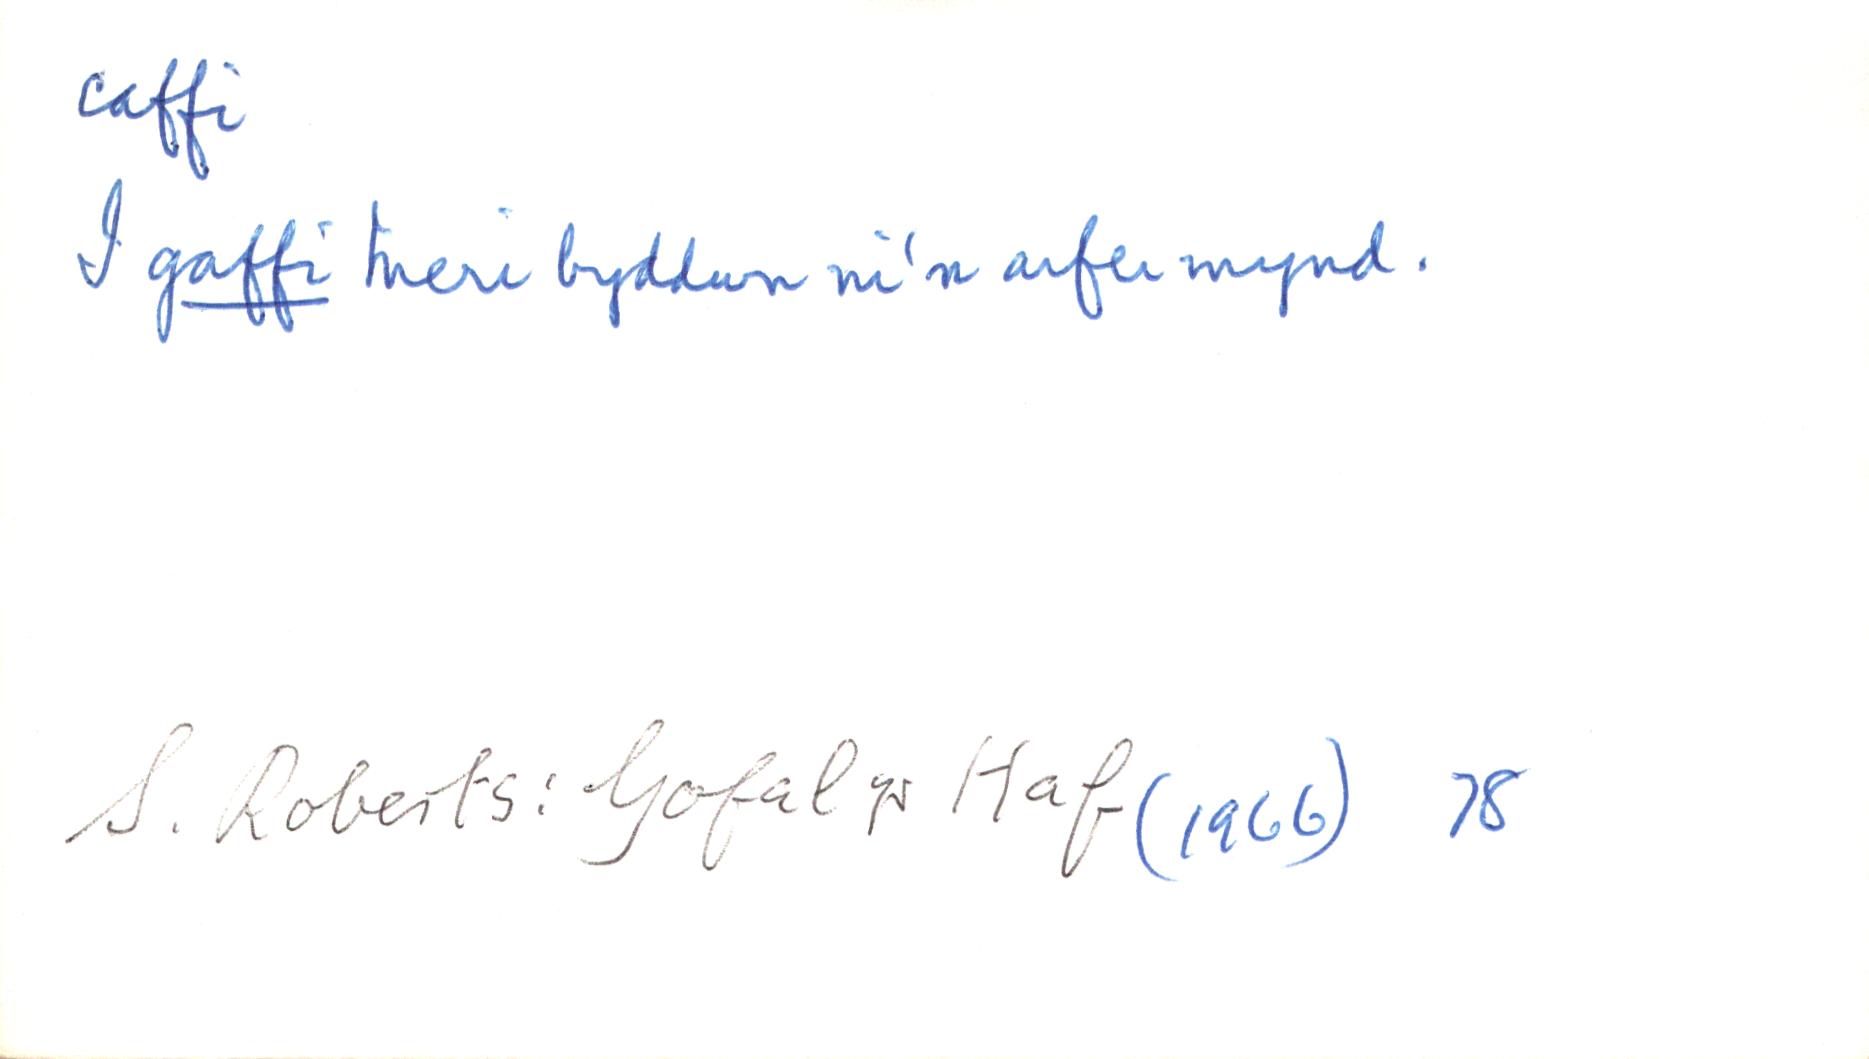 caffi
I gaffi Meri byddwn ni'n arfer mynd.
S. Roberts: Gofal yr Haf (1966) 78